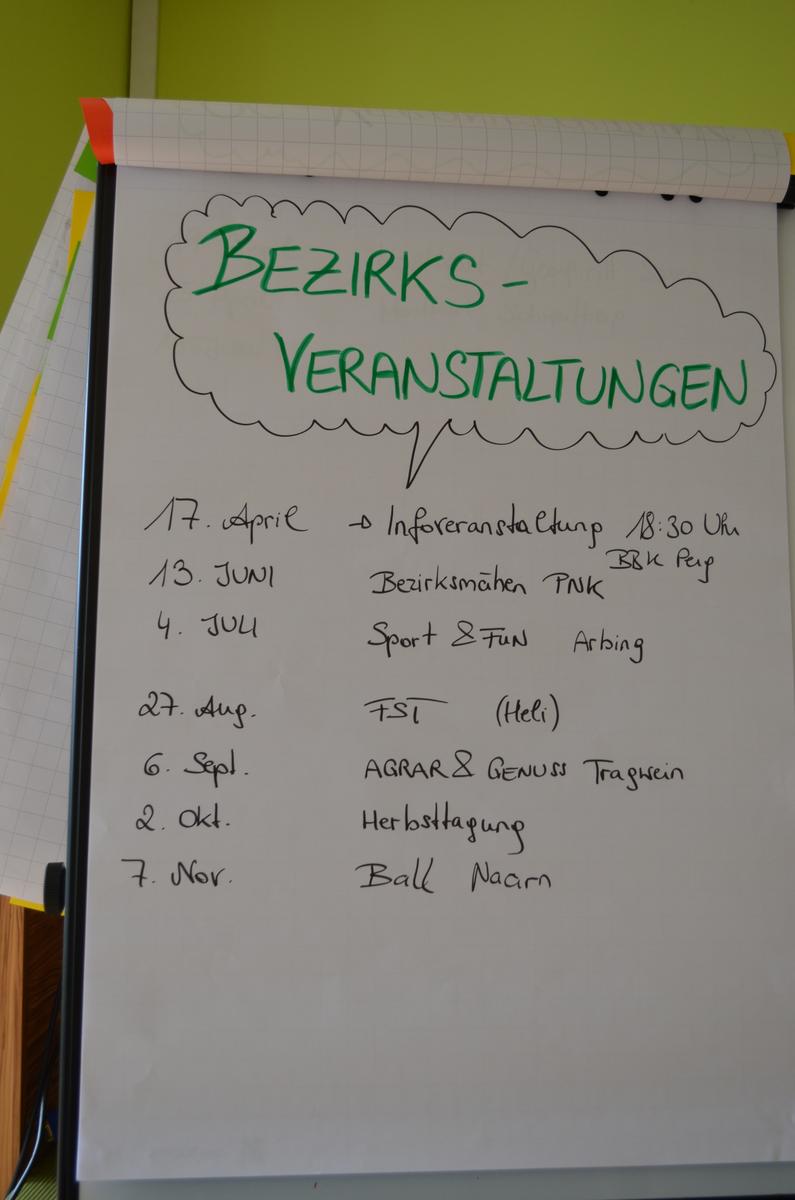 BEZIRKS-
VERANSTALTUNGEN
17. April → Infoveranstaltung 18:30 Uhr
BBK Perg
13. JUNI Bezirksmähen PNK
4. JULI Sport & FUN Arbing
27. Aug. FST (Heli)
6. Sept. AGRAR & GENUSS Tragwein
2. Okt. Herbsttagung
7. Nov. Ball Naarn